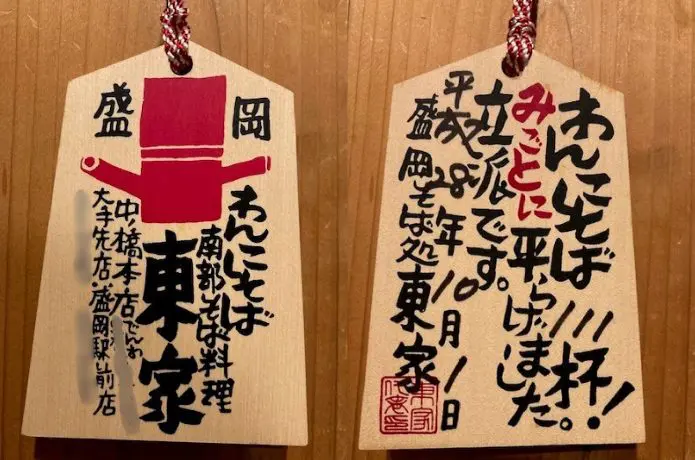 盛岡
わんこそば
南部そば料理
東家
中ノ橋本店でんわ
大手先店・盛岡駅前店
わんこそば111杯!
みごとに平らげました。
立派です。
平成28年10月1日
盛岡そば処東家
東家